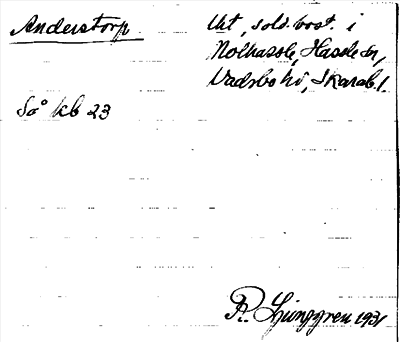 Anderstorp.
Utt, sold.bost. i
Nolhassle, Hassle sn,
Vadsbo hd, Skarab.l.
Så kb 23
R. Ljunggren 1931